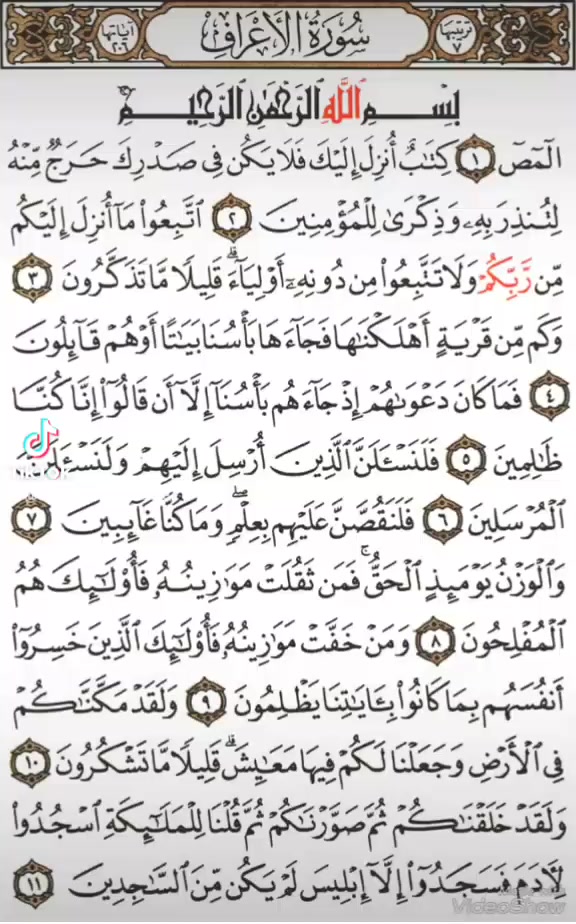 ترتيبها ٧ سُورَةُ الأَعْرَافِ آياتها ٢٠٦
بِسْمِ ٱللَّهِ ٱلرَّحْمَٰنِ ٱلرَّحِيمِ
الٓمٓصٓ ١ كِتَٰبٌ أُنزِلَ إِلَيْكَ فَلَا يَكُن فِى صَدْرِكَ حَرَجٌ مِّنْهُ
لِتُنذِرَ بِهِۦ وَذِكْرَىٰ لِلْمُؤْمِنِينَ ٢ ٱتَّبِعُوا۟ مَآ أُنزِلَ إِلَيْكُم
مِّن رَّبِّكُمْ وَلَا تَتَّبِعُوا۟ مِن دُونِهِۦٓ أَوْلِيَآءَ ۗ قَلِيلًا مَّا تَذَكَّرُونَ ٣
وَكَم مِّن قَرْيَةٍ أَهْلَكْنَٰهَا فَجَآءَهَا بَأْسُنَا بَيَٰتًا أَوْ هُمْ قَآئِلُونَ
٤ فَمَا كَانَ دَعْوَىٰهُمْ إِذْ جَآءَهُم بَأْسُنَآ إِلَّآ أَن قَالُوٓا۟ إِنَّا كُنَّا
ظَٰلِمِينَ ٥ فَلَنَسْـَٔلَنَّ ٱلَّذِينَ أُرْسِلَ إِلَيْهِمْ وَلَنَسْـَٔلَنَّ
ٱلْمُرْسَلِينَ ٦ فَلَنَقُصَّنَّ عَلَيْهِم بِعِلْمٍ ۖ وَمَا كُنَّا غَآئِبِينَ ٧
وَٱلْوَزْنُ يَوْمَئِذٍ ٱلْحَقُّ ۚ فَمَن ثَقُلَتْ مَوَٰزِينُهُۥ فَأُو۟لَٰٓئِكَ هُمُ
ٱلْمُفْلِحُونَ ٨ وَمَنْ خَفَّتْ مَوَٰزِينُهُۥ فَأُو۟لَٰٓئِكَ ٱلَّذِينَ خَسِرُوٓا۟
أَنفُسَهُم بِمَا كَانُوا۟ بِـَٔايَٰتِنَا يَظْلِمُونَ ٩ وَلَقَدْ مَكَّنَّٰكُمْ
فِى ٱلْأَرْضِ وَجَعَلْنَا لَكُمْ فِيهَا مَعَٰيِشَ ۗ قَلِيلًا مَّا تَشْكُرُونَ ١٠
وَلَقَدْ خَلَقْنَٰكُمْ ثُمَّ صَوَّرْنَٰكُمْ ثُمَّ قُلْنَا لِلْمَلَٰٓئِكَةِ ٱسْجُدُوا۟
لِـَٔادَمَ فَسَجَدُوٓا۟ إِلَّآ إِبْلِيسَ لَمْ يَكُن مِّنَ ٱلسَّٰجِدِينَ ١١
VideoShow